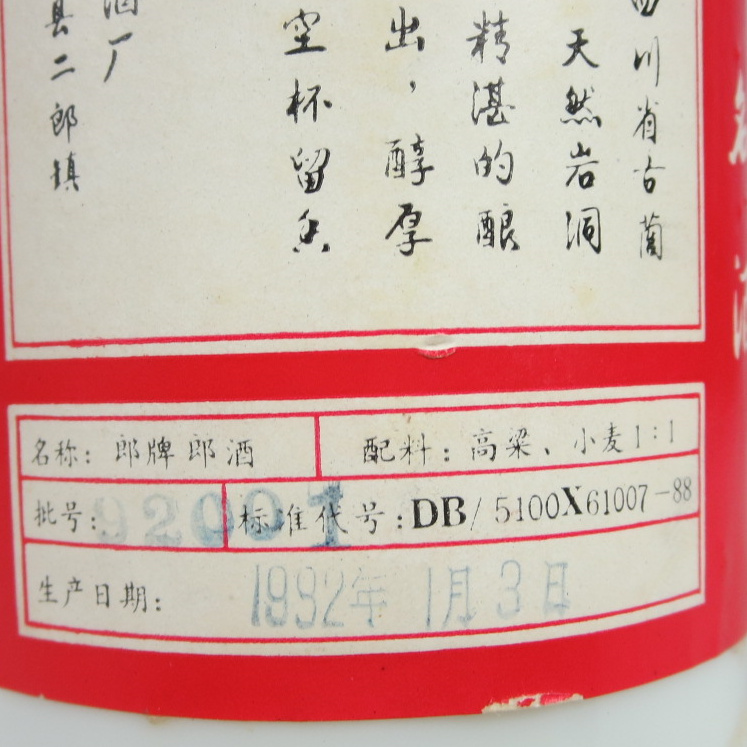 四川省古蔺
天然岩洞
精湛的酿
出，醇厚
空杯留香
酒厂
县二郎镇
名称：郎牌郎酒
配料：高粱、小麦1：1
批号：92001
标准代号：DB/5100X61007-88
生产日期：1992年1月3日
酒